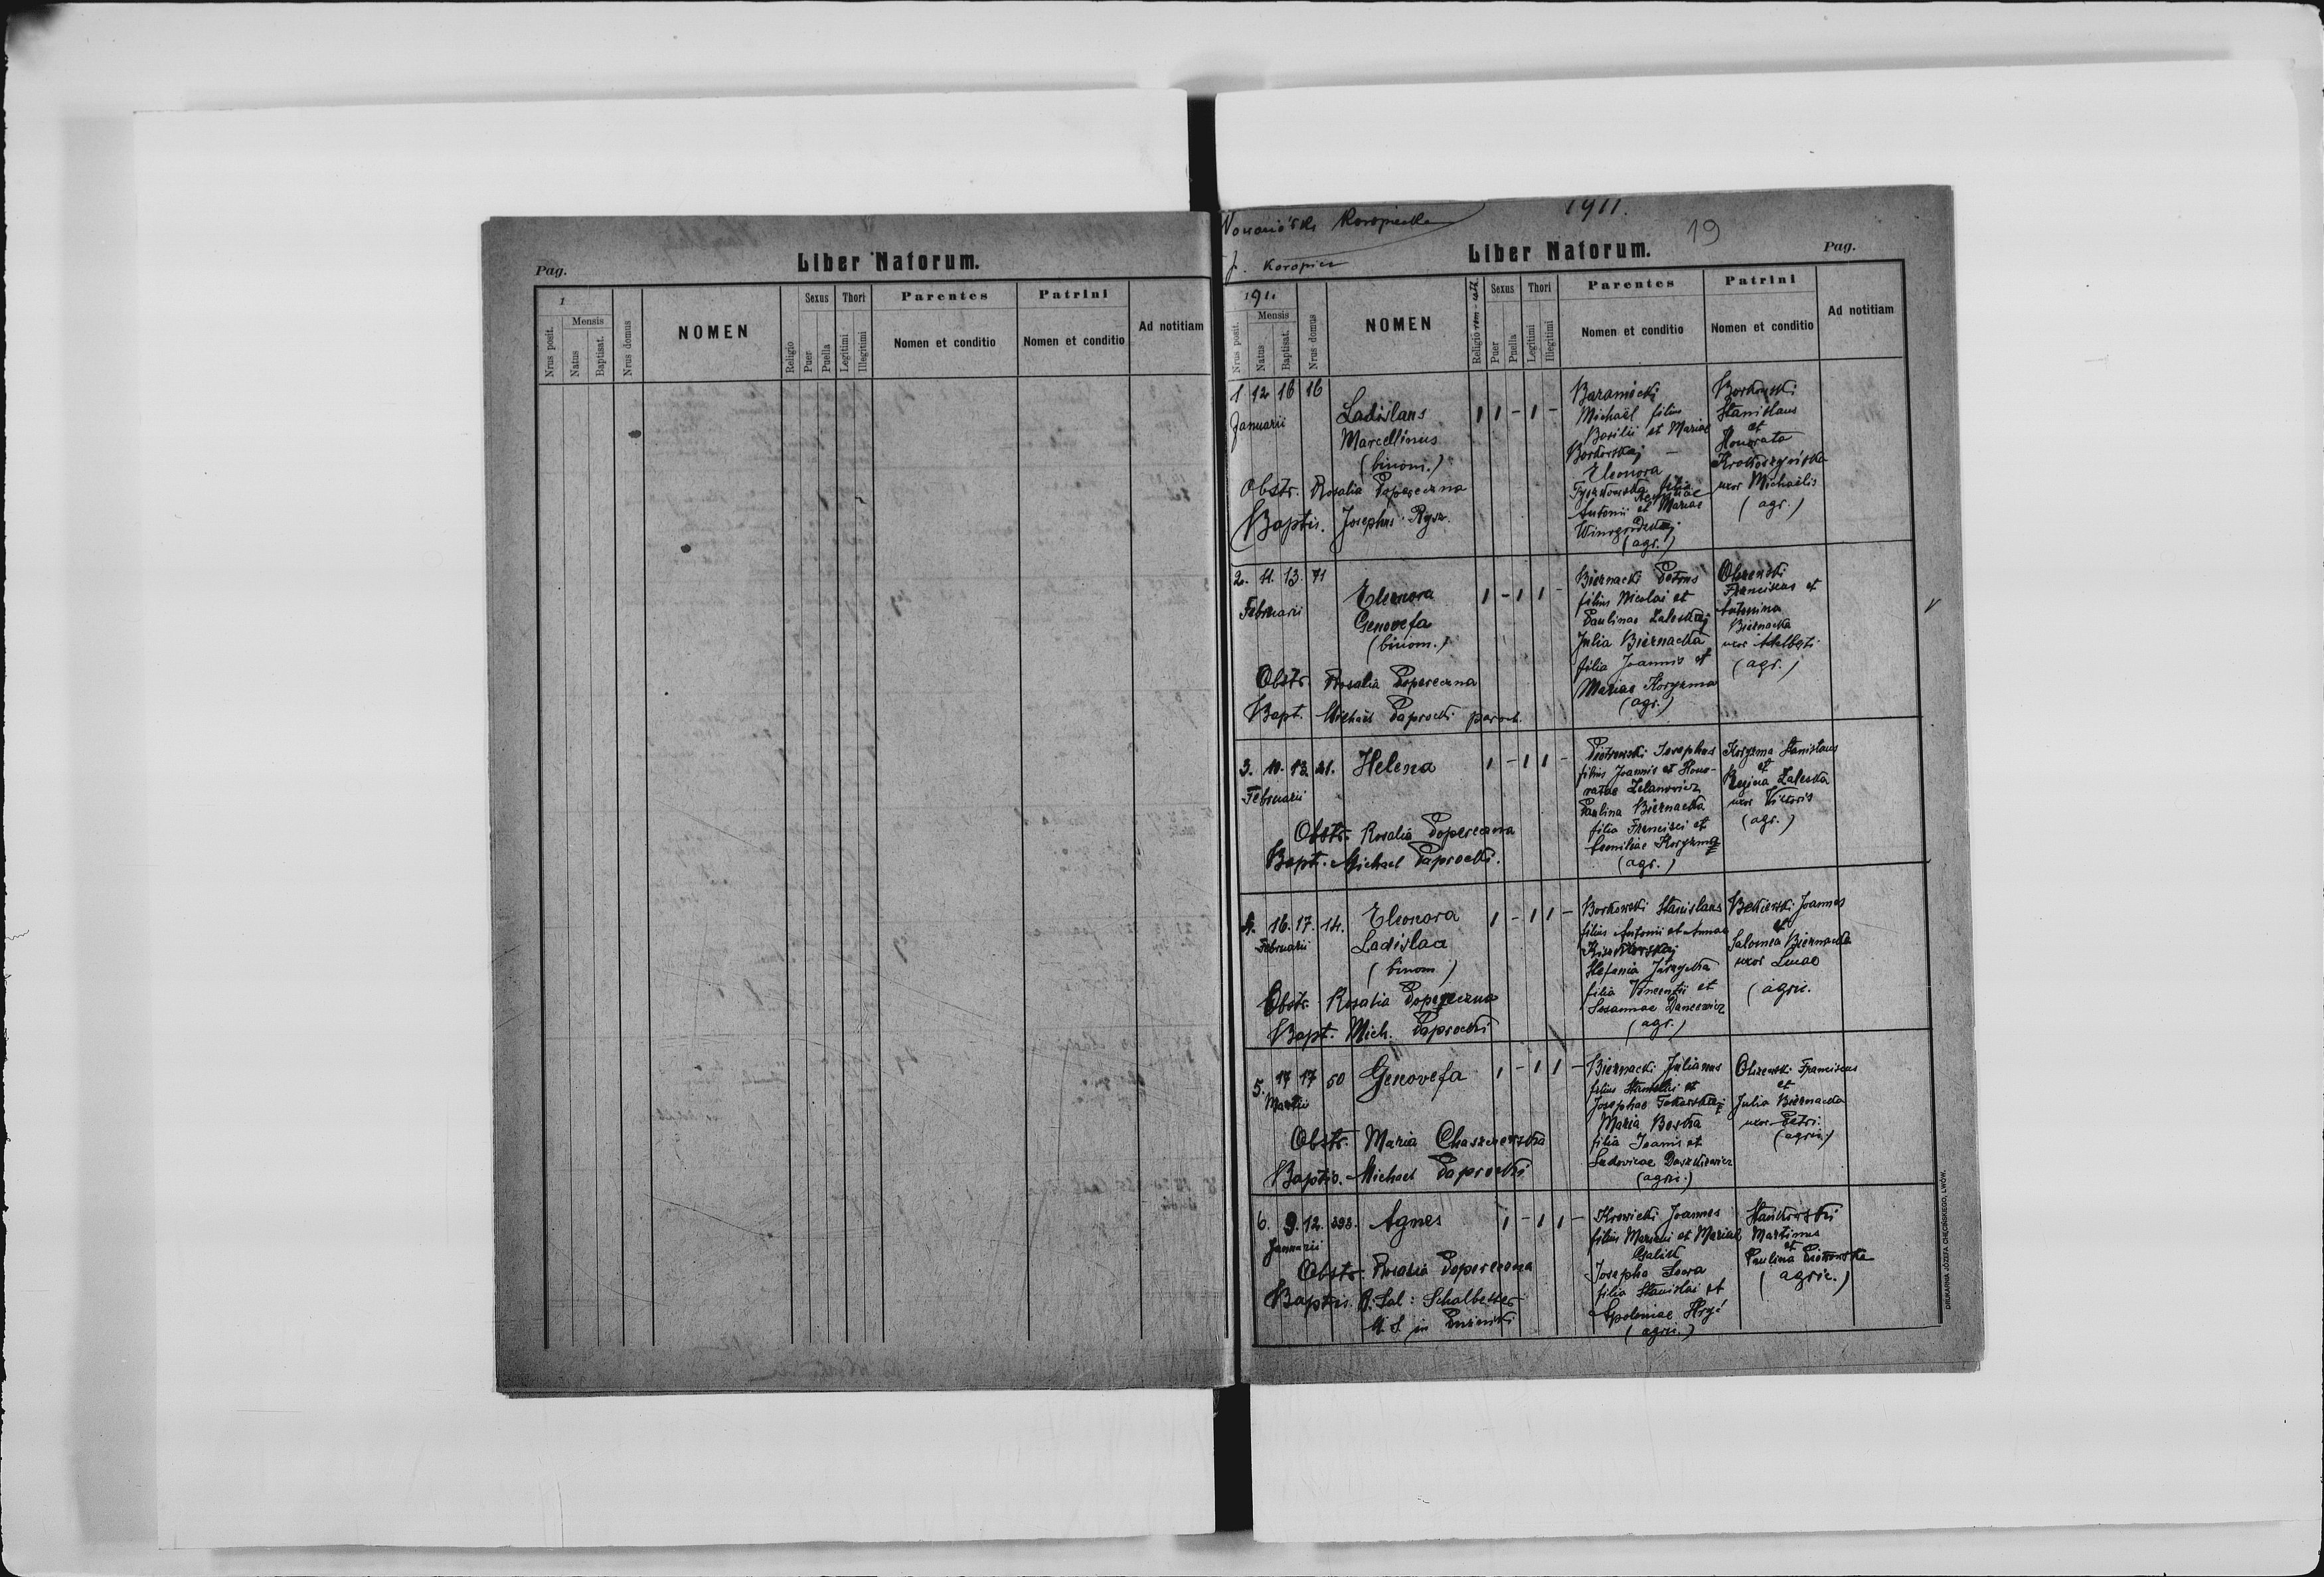 Pag.
Liber Natorum.
1
Nrus posit.
Mensis
Natus
Baptisat.
Nrus domus
NOMEN
Religio
Sexus
Puer
Puella
Thori
Legitimi
Illegitimi
Parentes
Nomen et conditio
Patrini
Nomen et conditio
Ad notitiam
1911.
19
Koropiecka
f. Koropiec
Liber Natorum.
Pag.
1911
Nrus posit.
Mensis
Natus
Baptisat.
Nrus domus
NOMEN
Religio rom-cath
Sexus
Puer
Puella
Thori
Legitimi
Illegitimi
Parentes
Nomen et conditio
Patrini
Nomen et conditio
Ad notitiam
1 12 16 16
Januarii
Ladislaus
Marcellinus
(binom.)
1 1 - 1 -
Obstr. Rosalia Popereczna
Baptis. Josephus Rysz.
Baranicki
Michaël filius
Basilii et Mariae
Borkowskaj
Eleonora
filia
Antonii et Mariae
(agr.)
Borkowski
Stanislaus
et
Honorata
uxor Michaëlis
(agr.)
2. 11. 13. 71
Februarii
Eleonora
Genovefa
(binom.)
1 - 1 1 -
Obstr. Rosalia Popereczna
Bapt. Michaël Paprocki paroch.
Biernacki Petrus
filius Nicolai et
Paulinae Zaleskaj
Julia Biernacka
filia Joannis et
Mariae Koryzma
(agr.)
Olszewski
Franciscus et
Antonina
Biernacka
uxor Adalberti
(agr.)
3. 10. 13. 21.
Februarii
Helena
1 - 1 1 -
Obstr. Rosalia Popereczna
Bapt. Michael Paprocki.
Piotrowski Josephus
filius Joannis et Hono-
ratae
Paulina Biernacka
filia Francisci et
Koryzma
(agr.)
Koryzma Stanislaus
et
Regina Zaleska
uxor Victoris
(agr.)
4. 16. 17. 14.
Februarii
Eleonora
Ladislaa
(binom.)
1 - 1 1 -
Obstr. Rosalia Popereczna
Bapt. Mich. Paprocki
Borkowski Stanislaus
filius Antonii et Annae
Stefania
filia Vincentii et
Susannae Dancewicz
(agr.)
Joannes
et
Salomea Biernacka
uxor Lucae
(agric.
5. 17 17 50
Martii
Genovefa
1 - 1 1 -
Obstr. Maria Chaszczewska
Baptis. Michael Paprocki
Biernacki Julianus
filius Stanislai et
Josephae Tokarskaj
Maria
filia Joannis et
Ludovicae Daszkiewicz
(agric.)
Olszewski Franciscus
et
Julia Biernacka
uxor Petri.
(agric.)
6. 9. 12. 393.
Januarii
Agnes
1 - 1 1 -
Obstr. Rosalia Popereczna
Baptis.
Krowicki Joannes
filius Mariani et Mariae
Josepha
filia Stanislai et
Apoloniae Hryć
(agric.)
Stankowski
Martinus
et
Paulina Piotrowska
(agric.)
DRUKARNIA JÓZEFA CHĘCIŃSKIEGO, LWÓW.